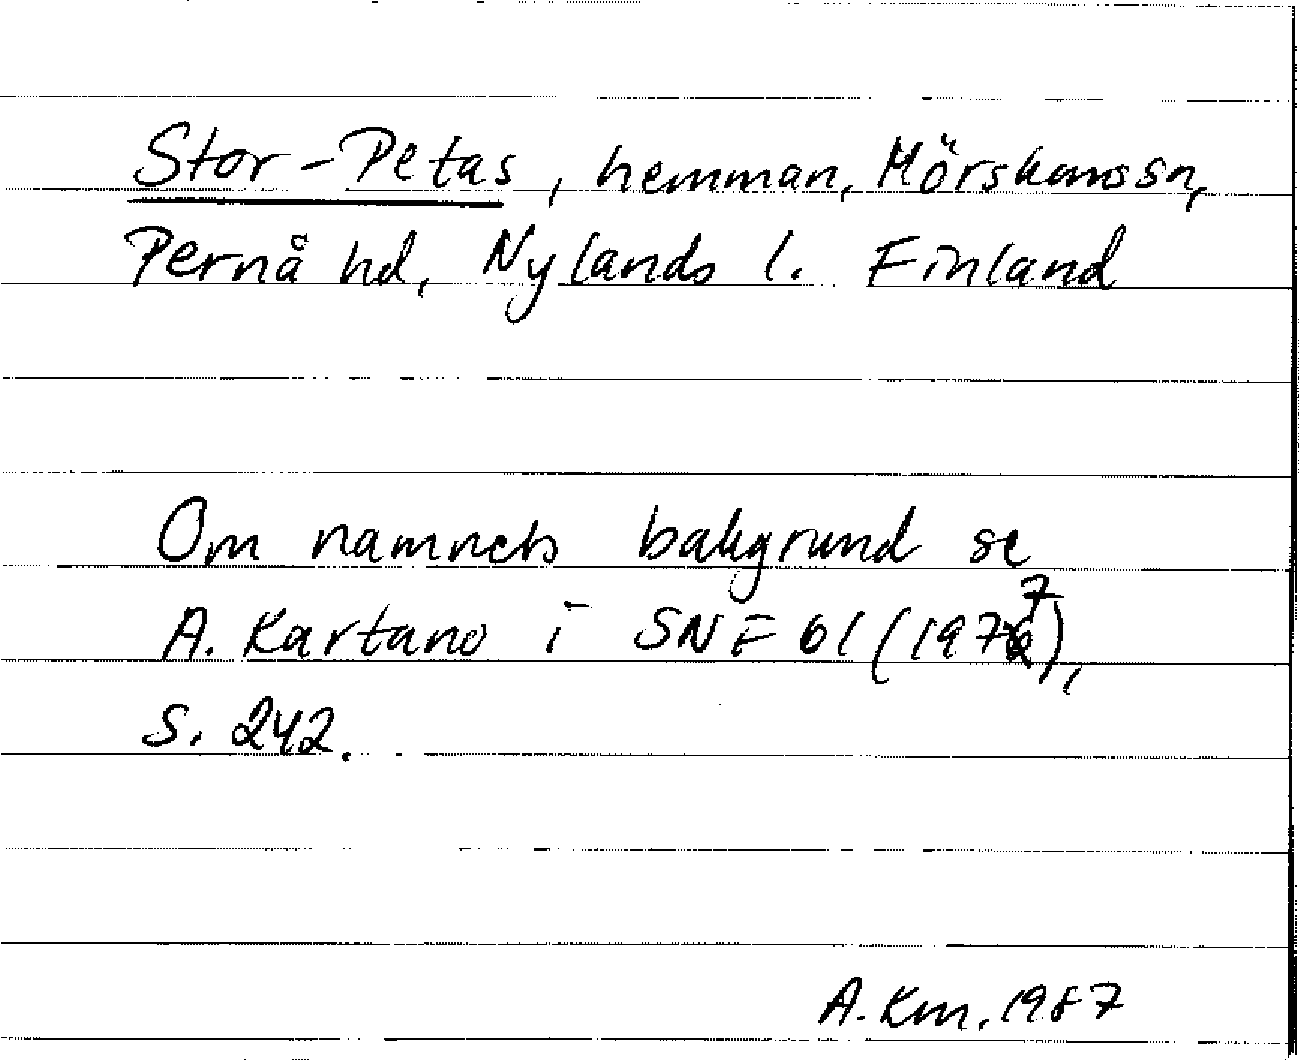 Stor-Petas, hemman, Mörskoms sn,
Pernå hd, Nylands l. Finland
Om namnets bakgrund se
A. Kartano i SNF 61 (1977),
s. 242.
A. Km. 1987